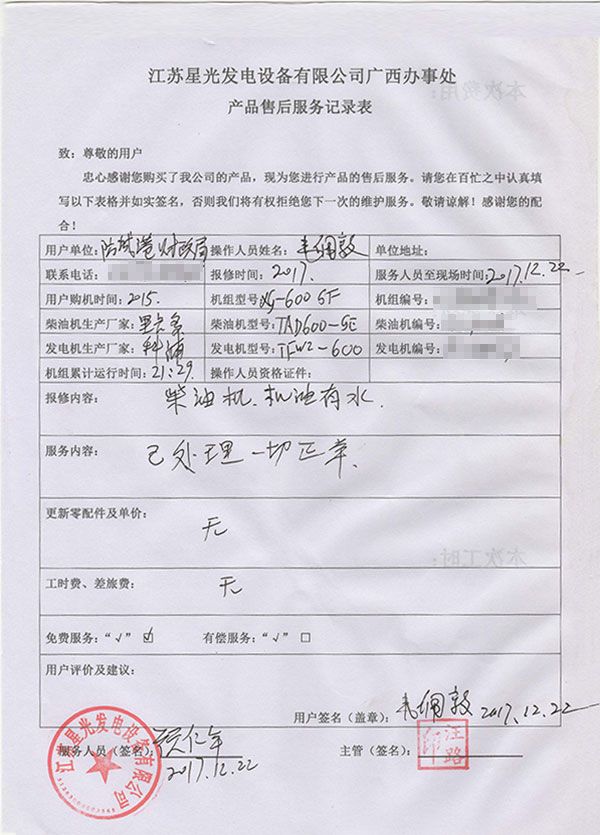 江苏星光发电设备有限公司广西办事处
产品售后服务记录表
致：尊敬的用户
忠心感谢您购买了我公司的产品，现为您进行产品的售后服务。请您在百忙之中认真填
写以下表格并如实签名，否则我们将有权拒绝您下一次的维护服务。敬请谅解！感谢您的配
合！
用户单位：防城港财政局 操作人员姓名： 单位地址：
联系电话： 报修时间：2017. 服务人员至现场时间：2017.12.22
用户购机时间：2015. 机组型号：XG-600GF 机组编号：
柴油机生产厂家： 柴油机型号：TAD600-GE 柴油机编号：
发电机生产厂家： 发电机型号：TFW2-600 发电机编号：
机组累计运行时间：21:29 操作人员资格证件：
报修内容：柴油机.机油有水.
服务内容：已处理一切正常.
更新零配件及单价：无
工时费、差旅费：无
免费服务：“√” ☑ 有偿服务：“√” □
用户评价及建议：
用户签名（盖章）： 2017.12.22
服务人员（签名）：
2017.12.22
主管（签名）：
汪路印
江苏星光发电设备有限公司
本次费用：
本次工时：